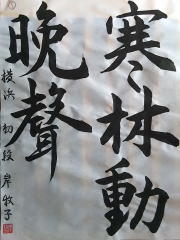 寒林動
晩聲
横浜 初段 岸牧子